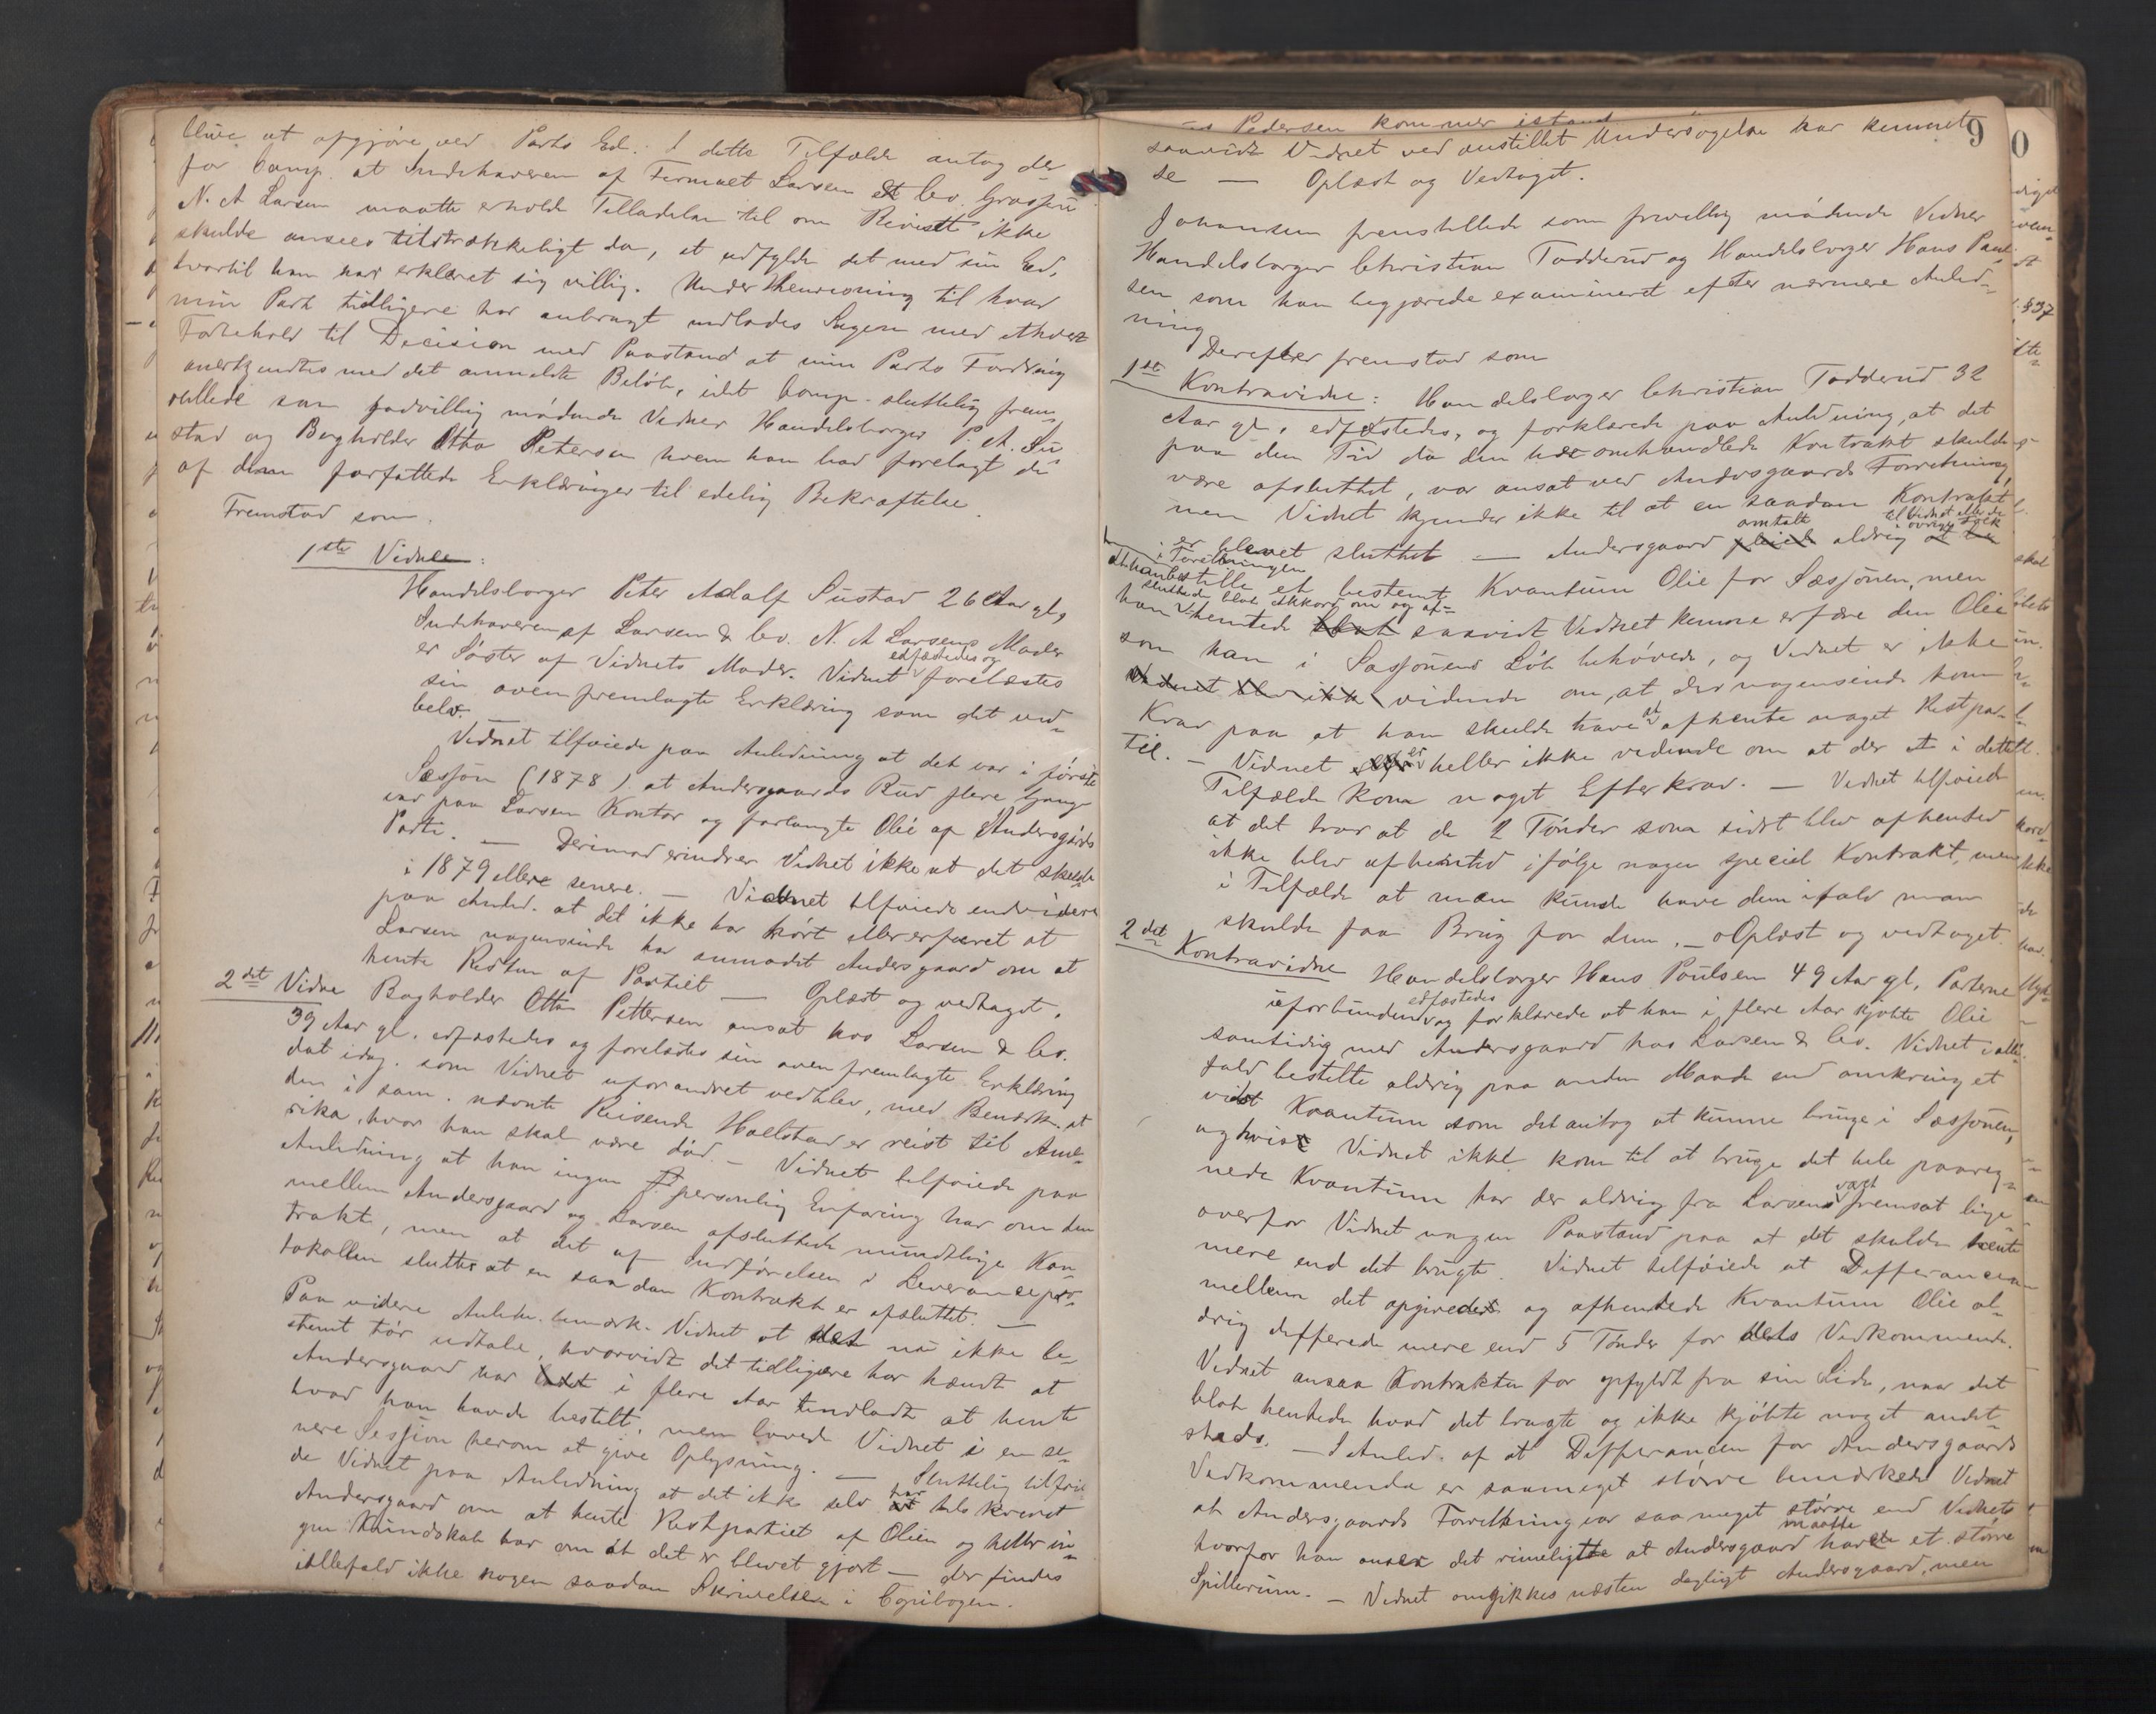 at afgjøre ved Parts Ed. I dette Tilfælde antog der
for Comp. at Indehaveren af Firmaet Larsen & Co. Grosserer
N. A Larsen maatte erholde Tilladelse til om Beviset ikke
skulde ansees tilstrækkeligt da, at udfylde det med sin Ed,
hvortil han har erklæret sig villig. Under Henvisning til hvad
min Part tidligere har anbragt indlodes Sagen med ethvert
Forbehold til Decision med Paastand at min Parts Fordring
anerkjendtes med det anmeldte Beløb, idet Comp. sluttelig frem-
stillede som godvillig mødende Vidner Handelsborger P. A. Su-
stad og Bogholder Otto Petersen hvem han bad forelagt de
af dem forfattede Erklæringer til edelig Bekræftelse.
Fremstod som
1ste Vidne:
Handelsborger Peter Adolf Sustad 26 Aar gl,
Indehaveren af Larsen & Co. N. A Larsens Moder
er Søster af Vidnets Moder. Vidnet edfæstedes og forelæstes
sin ovenfremlagte Erklæring som det ved-
blev.
Vidnet tilføiede paa Anledning at det var i første
Sæsjon (1878) at Andersgaards Bud flere Gange
var paa Larsens Kontor og forlangte Olie af Andersgårds
Parti. — Derimod erindrer Vidnet ikke at det skeede
i 1879 eller senere. — Vidnet tilføiede endvidere
paa Anled. at det ikke har hørt eller erfaret at
Larsen nogensinde har anmodet Andersgaard om at
hente Resten af Partiet — Oplæst og vedtaget.
2det Vidne Bogholder Otto Pettersen ansat hos Larsen & Co.
39 Aar gl. edfæstedes og forelæstes sin ovenfremlagte Erklæring
dat idag. som Vidnet uforandret vedblev, med Bemærk. at
den i sam. nævnte Reisende Hallstad er reist til Ame-
rika, hvor han skal være død. — Vidnet tilføiede paa
Anledning at han ingen personlig Erfaring har om den
mellem Andersgaard og Larsen afsluttede mundtlige Kon-
trakt, men at det af Indførelsen i Leveranseprot-
tokollen slutter at en saadan Kontrakt er afsluttet. —
Paa videre Anledn. bemærk. Vidnet at det nu ikke be-
stemt tør udtale, hvorvidt det tidligere har hændt at
Andersgaard har i flere Aar undladt at hente
hvad han havde bestilt, men lovede Vidnet i en se-
nere Sesjon herom at give Oplysning. — Sluttelig tilføie-
de Vidnet paa Anledning at det ikke selv har krævet
Andersgaard om at hente Restpartiet af Olien og heller in-
gen Kundskab har om at det er blevet gjort — der findes
iallefald ikke nogen saadan Skrivelse i Copibogen.
Pedersen kommer istand
9
saavidt Vidnet ved anstillet Undersøgelse har kunnet
se — Oplæst og Vedtaget.
Johansen fremstillede som frivillig mødende Vidner
Handelsborger Christian Todderud og Handelsborger Hans Poul-
sen som han begjærede examineret efter nærmere Anled-
ning
Derefter fremstod som
1ste Kontravidne: Handelsborger Christian Todderud 32
Aar gl. edfæstedes, og forklarede paa Anledning, at det
paa den Tid da den omhandlede Kontrakt skulde
være afsluttet, var ansat ved Andersgaards Forretning,
men Vidnet kjender ikke til at en saadan Kontrakt
er blevet sluttet — Andersgaard omtalte aldrig til Vidnet eller de i øvrige Folk
i Forretningen
at han bestilte et bestemt Kvantum Olie for Sæsjonen, men
sluttede blot Akkord om og af-
han hentede saavidt Vidnet kunne erfare den Olie
som han i Sæsjonens Løb behøvede, og Vidnet er ikke
vidende om, at der nogensinde kom
Krav paa at han skulde have at afhente noget Restpar-
tie. — Vidnet er heller ikke vidende om at der i dette
Tilfælde kom noget Efterkrav. — Vidnet tilføied
at det tror at de 2 Tønder som sidst blev afhented
ikke blev afhentet ifølge nogen speciel Kontrakt, men
i Tilfælde at man kunde have dem ifald man
skulde faa Brug for dem. — Oplæst og vedtaget.
2det Kontravidne Handelsborger Hans Poulsen 49 Aar gl, Parterne
uforbunden edfæstedes og forklarede at han i flere Aar kjøbte Olie
samtidig med Andersgaard hos Larsen & Co. Vidnet i alle-
fald bestilte aldrig paa anden Maade end omkring et
vist Kvantum som det antog at kunne bruge i Sæsjonen,
og hvis Vidnet ikke kom til at bruge det hele paareg-
nede Kvantum har der aldrig fra Larsens vært fremsat lige-
overfor Vidnet nogen Paastand paa at det skulde hente
mere end det brugte. Vidnet tilføiede at Differancen
mellem det opgivedes og afhentede Kvantum Olie al-
drig differede mere end 5 Tønder for dets Vedkommende.
Vidnet ansaa Kontrakten for opfyldt fra sin Side, naar det
blot hentede hvad det brugte og ikke kjøbte noget andet-
steds. — I Anled. af at Differancen for Andersgaards
Vedkommende er saameget større bemærkede Vidnet
at Andersgaards Forretning var saa meget større end Vidnets
hvorfor han anser det rimeligt at Andersgaard maatte have et større
Spillerum. — Vidnet omgikkes næsten dagligt Andersgaard, men